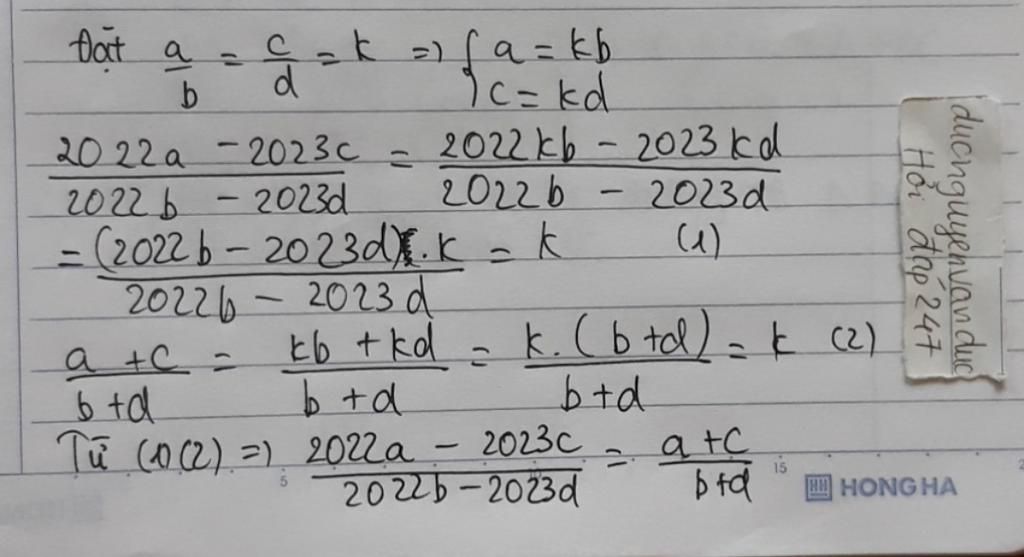 Đặt a/b = c/d = k => { a = kb
c = kd
(2022a - 2023c)/(2022b - 2023d) = (2022kb - 2023kd)/(2022b - 2023d)
= ((2022b - 2023d).k)/(2022b - 2023d) = k (1)
(a + c)/(b + d) = (kb + kd)/(b + d) = (k.(b + d))/(b + d) = k (2)
Từ (1)(2) => (2022a - 2023c)/(2022b - 2023d) = (a + c)/(b + d)
5 10 15 2
HH HONG HA
duongnguyenvanduc
Hỏi đáp 247